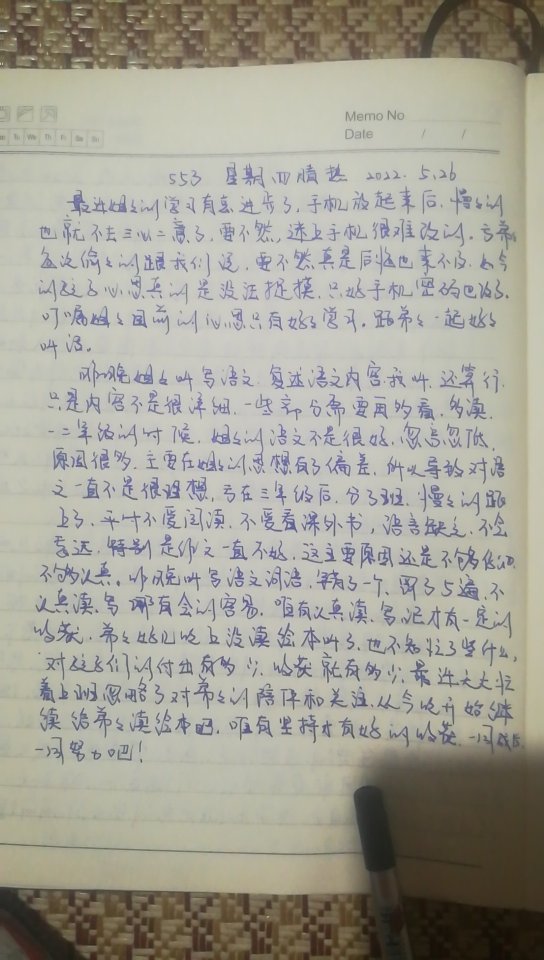 Memo No
Date / /
Mo Tu We Th Fr Sa Su
553 星期四 晴热 2022.5.26
最近姐姐的学习有点进步了,手机放起来后,慢慢的
也就不去三心二意了,要不然,迷上手机很难改的,亏弟弟
每次偷偷的跟我们说,要不然真是后悔也来不及,如今
的孩子心思真的是没法捉摸,只好手机密码也改了。
叮嘱姐姐目前的心思只有好好学习,跟弟弟一起好好
听话。
昨晚姐姐听写语文,复述语文内容我听,还算行,
只是内容不是很详细,一些部分需要再多看,多读,
一二年级的时候,姐姐的语文不是很好,忽高忽低,
原因很多,主要在姐姐的思想有了偏差,所以导致对语
文一直不是很理想,亏在三年级后,分了班,慢慢的跟
上了,平时不爱阅读,不爱看课外书,语言缺乏,不会
表达,特别是作文一直不好,这主要原因还是不够
不够认真。昨晚听写语文词语,错了一个,罚了5遍,不
认真读,写哪有会的容易,唯有认真读,写记才有一定的
收获,弟弟好几晚上没读绘本听了,也不知忙了些什么,
对孩子们的付出有多少,收获就有多少,最近天天忙
着上班忽略了对弟弟的陪伴和关注,从今晚开始继
续给弟弟读绘本吧,唯有坚持才有好的收获,一同成长
一同努力吧!